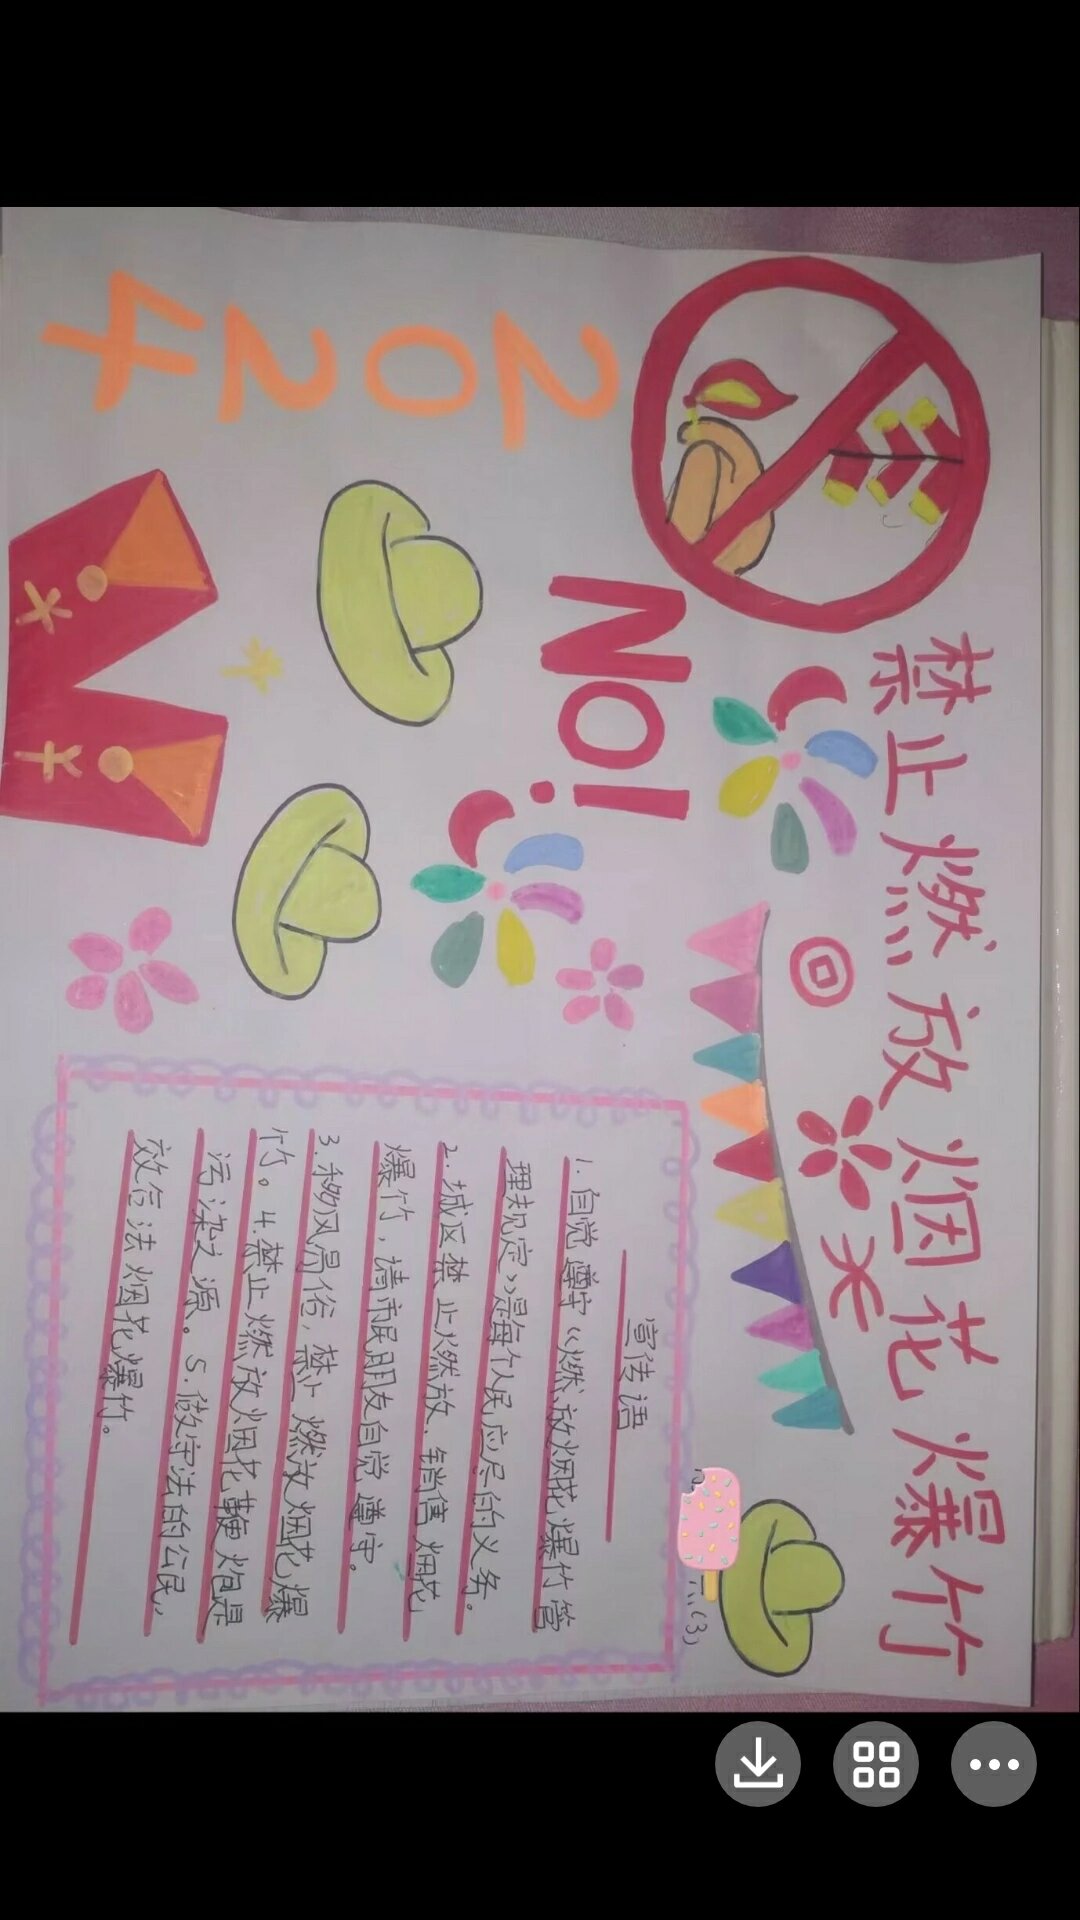 禁止燃放烟花爆竹
2024
NO!
宣传语
1.自觉遵守《燃放烟花爆竹管
理规定》是每个人民应尽的义务。
2.城区禁止燃放、销售烟花
爆竹,请市民朋友自觉遵守。
3.移风易俗,禁止燃放烟花爆
竹。4.禁止燃放烟花鞭炮是
污染之源。5.做守法的公民,
法烟花爆竹。